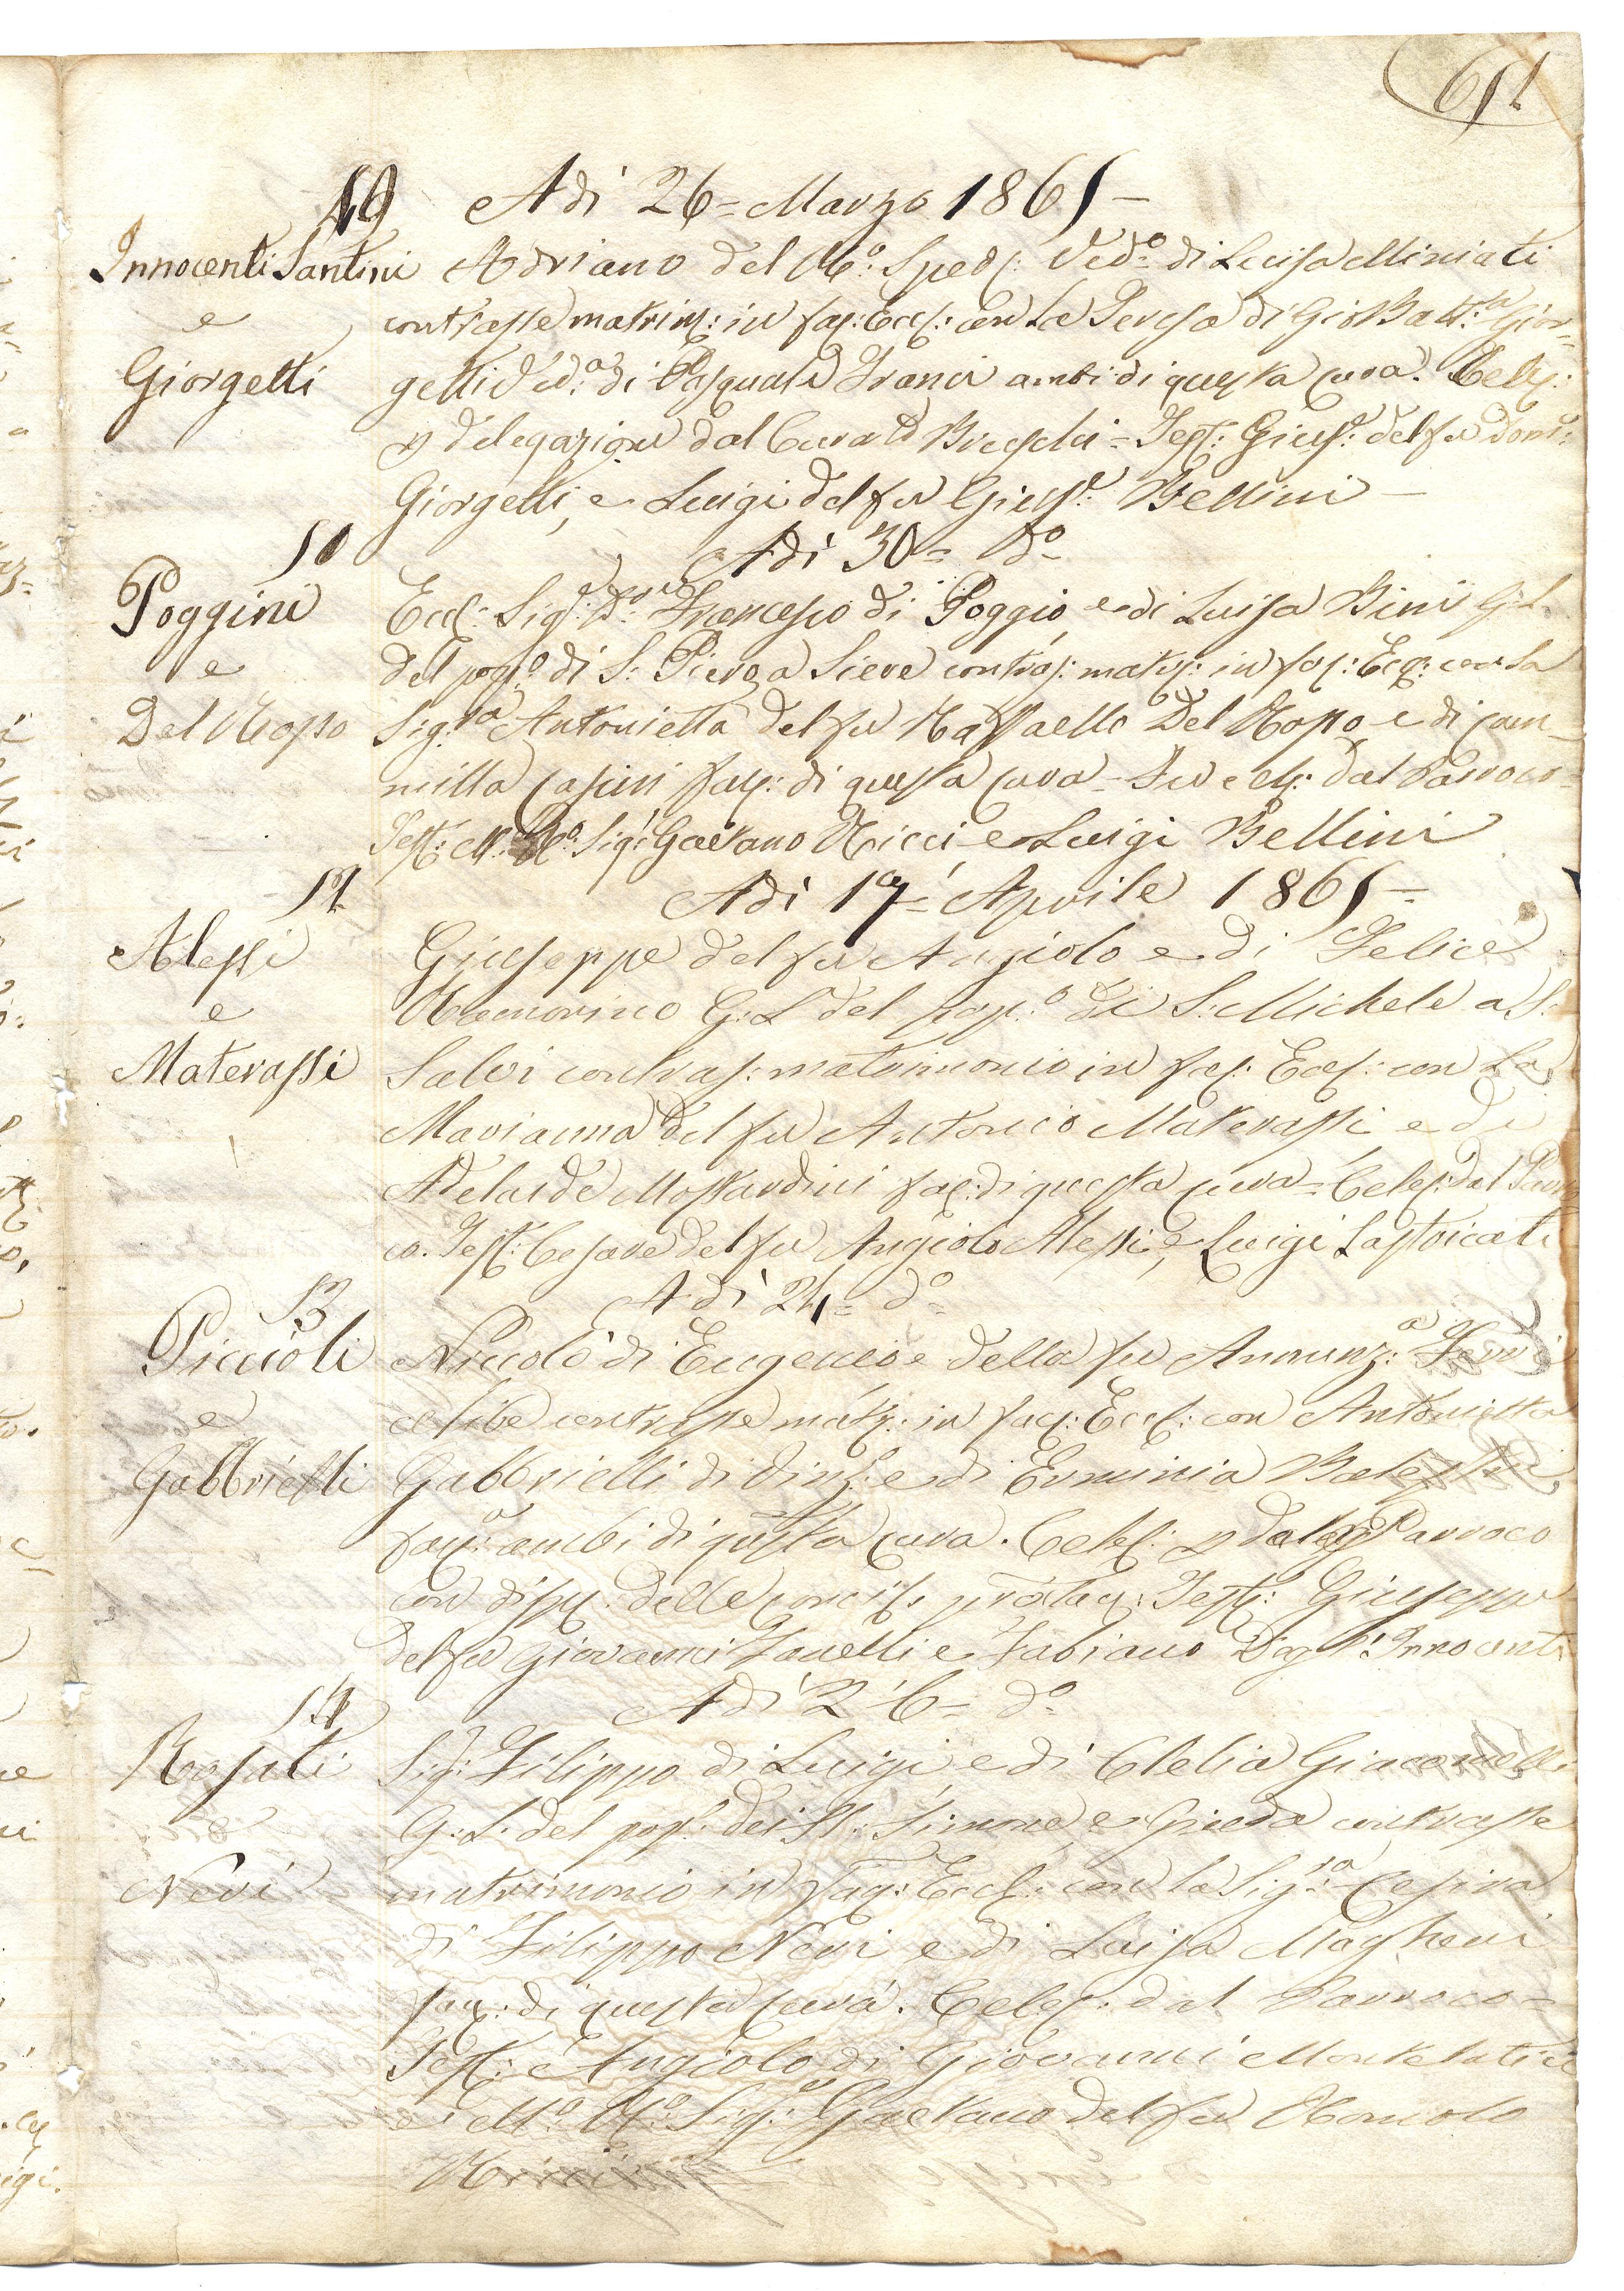 49 Adì 26= Marzo 1865 —
Innocenti Santini Adriano del Ved.º di Luisa Miniati
e contrasse matrim: in fac: Eccl: con la Teresa di Gio Batt.ta Gior=
Giorgetti getti Ved.a di Pasquale Franci ambi di questa Cura. Celeb:
delegazione dal Curato Breschi = Test: Gius.e del fu Dom.º
Giorgetti, e Luigi del fu Gius.e Bellini —
50 Adì 30= d.º
Poggini Ecc: Sig.e D.re Francesco di Poggio e di Luisa Bini G: L.
e del pop.º di S. Piero a Sieve contras: matr: in fac: Ecc: con la
Del Rosso Sig.ra Antonietta del fu Raffaello Del Rosso e di Cam=
milla Casini fac: di questa Cura = Fu cel: dal Parroco =
Test: M. R.º Sig.e Gaetano Ricci e Luigi Bellini
Adì 17= Aprile 1865 =
Alessi Giuseppe del fu Angiolo e di Felice
e Ramorino G: L. del pop.º di S. Michele a S.
Materassi Salvi contras: matrimonio in fac: Eccl: con la
Marianna del fu Antonio Materassi e di
Adelaide Mostardini fac: di questa Cura = Celeb: dal Parro
co. Test: Cesare del fu Angiolo Alessi, e Luigi Lastricati
Adì 24= d.º
53
Piccioli Niccolò di Eugenio e della fu Annunz.a
e celibe contrasse matr: in fac: Eccl: con Antonietta
Gabbrielli Gabbrielli di Vinc: e di Erminia
fac: ambi di questa Cura. Celeb: Parroco
con disp: delle Test: Giuseppe
del fu Giovanni Zanelli e Fabiano Degl' Innocenti
Adì 26= d.º
54
Rosati Sig.e Filippo di Luigi e di Clelia Giacomelli
e G: L. del pop.º dei SS. Simone e Giuda contrasse
Nevi matrimonio in fac: Eccl: con la Sig.ra Cesira
di Filippo Nevi e di Luisa Magheri
fac: di questa Cura. Celeb: dal Parroco =
Test: Angiolo di Giovanni Montelatici
e M.º R.º Sig.e Gaetano del fu Romolo
Ricci